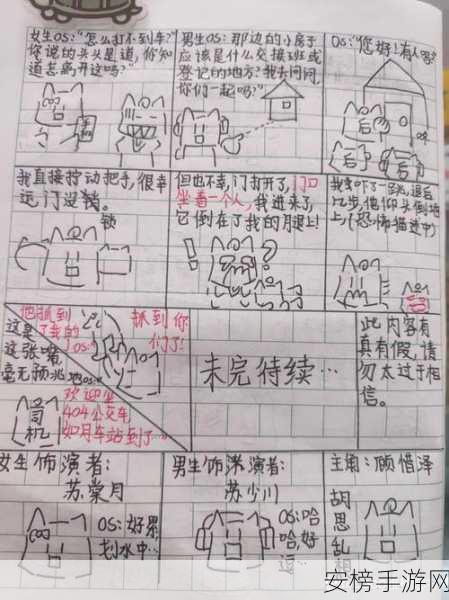 女生OS:“怎么打不到车?
你说的头头是道,你知
道怎离开这吗?”
男生OS:那边的小房子
应该是什么交接班或
登记的地方?我去问问,
你们一起吗?”
OS:“您好!有人吗?
后
后
后
我直接拧动把手,很幸
运门没锁。
锁
但也不幸,门打开了,门口
坐着一个人,我进来了,
它倒在了我的腿上!
!
?
我吓了一跳,退后
几步,他仰头倒地
上,(恐怖猫途中)
他抓到
了我的
OS:
这是
这张嘴
毫无预兆地
OS:
抓到你
们了!
欢迎坐
404公交车,
如月车站到了…
司机
未完待续…
此内容有
真有假,请
勿太过于相
信。
女生饰演者:
苏棠月
OS:好累
划水中…
男生饰演者:
苏少川
OS:哈
哈,好
逗…
主角:顾惜泽
胡思乱想
安榜手游网